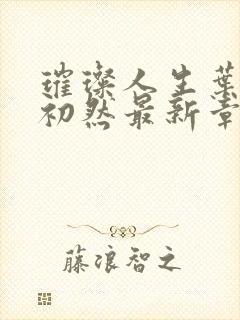 璀璨人生叶
初然最新章
藤浪智之